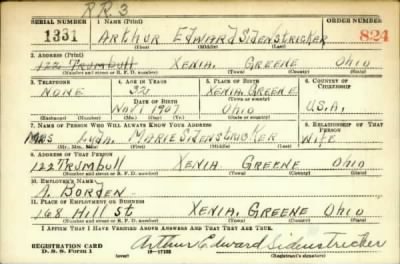 R.R. 3
SERIAL NUMBER 1. NAME (Print) ORDER NUMBER
1331 ARTHUR EDWARD SIDENSTRICKER 824
(First) (Middle) (Last)
2. ADDRESS (Print)
122 TRUMBULL XENIA GREENE OHIO
(Number and street or R. F. D. number) (Town) (County) (State)
3. TELEPHONE 4. AGE IN YEARS 5. PLACE OF BIRTH 6. COUNTRY OF CITIZENSHIP
NONE 32 XENIA GREENE
DATE OF BIRTH (Town or county)
NOV 1 1907 OHIO U.S.A.
(Mo.) (Day) (Yr.) (State or country)
7. NAME OF PERSON WHO WILL ALWAYS KNOW YOUR ADDRESS 8. RELATIONSHIP OF THAT PERSON
MRS MARIE SIDENSTRICKER WIFE
(Mr., Mrs., Miss) (First) (Middle) (Last)
9. ADDRESS OF THAT PERSON
122 TRUMBULL XENIA GREENE OHIO
(Number and street or R. F. D. number) (Town) (County) (State)
10. EMPLOYER'S NAME
A. BORDEN
11. PLACE OF EMPLOYMENT OR BUSINESS
168 Hill St XENIA, GREENE OHIO
(Number and street or R. F. D. number) (Town) (County) (State)
I AFFIRM THAT I HAVE VERIFIED ABOVE ANSWERS AND THAT THEY ARE TRUE.
REGISTRATION CARD
D. S. S. Form 1 Arthur Edward Sidenstricker
(Registrant's signature)